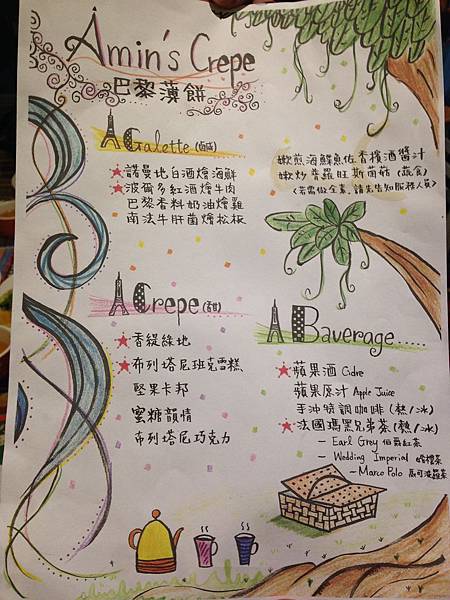 Amin's Crepe
巴黎薄餅
Galette (鹹)
★諾曼地白酒燴海鮮
★波爾多紅酒燴牛肉
巴黎香料奶油燴雞
南法牛肝菌燴松板
嫩煎海鮮魚佐香檳酒醬汁
嫩炒普羅旺斯菌菇 (蔬食)
(若需做全素,請先告知服務人員)
Crepe (甜)
★香緹綠地
★布列塔尼班克雪糕
堅果卡邦
蜜糖韻情
布列塔尼巧克力
Baverage......
★蘋果酒 Cidre
蘋果原汁 Apple Juice
手沖特調咖啡 (熱/冰)
★法國瑪黑兄弟茶 (熱/冰)
- Earl Grey 伯爵紅茶
- Wedding Imperial 婚禮茶
- Marco Polo 馬可波羅茶